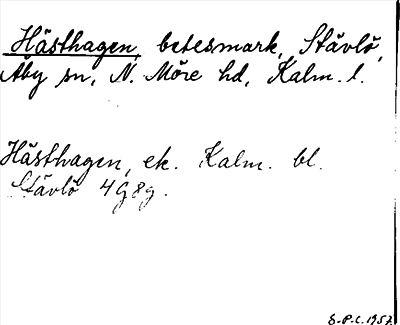 Hästhagen, betesmark, Stävlö,
Åby sn, N. Möre hd, Kalm. l.
Hästhagen, ek. Kalm. bl.
Stävlö 4G8g.
S.P.C. 1957.